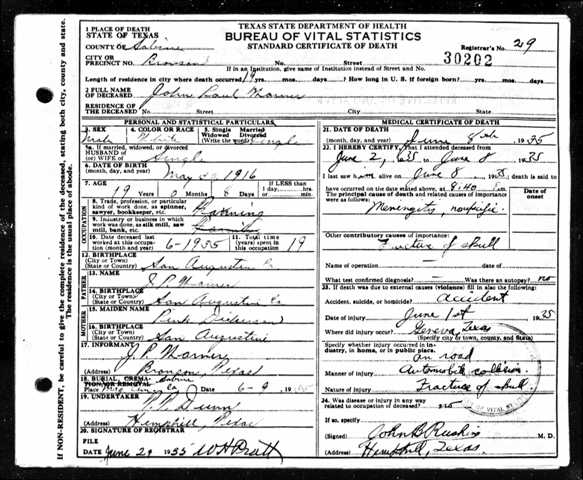 TEXAS STATE DEPARTMENT OF HEALTH
BUREAU OF VITAL STATISTICS
STANDARD CERTIFICATE OF DEATH
1 PLACE OF DEATH
STATE OF TEXAS
COUNTY OF Sabine
Registrar's No. 29
CITY OR PRECINCT Bronson No. Street 30202
If in an Institution, give name of Institution instead of Street and No.
Length of residence in city where death occurred 19 yrs. mos. days. ? How long in U. S. if foreign born? yrs. mos. days.
2 FULL NAME OF DECEASED John Paul
RESIDENCE OF THE DECEASED No. Street City State
PERSONAL AND STATISTICAL PARTICULARS
3. SEX Male
4. COLOR OR RACE White
5. Single Married Widowed Divorced (Write the word) Single
5a. If married, widowed, or divorced HUSBAND OF (or) WIFE OF Single
6. DATE OF BIRTH (month, day, year) May 1916
7. AGE 19 Years 0 Months Days If LESS than 1 day
8. Trade, profession, or particular kind of work done, as spinner, sawyer, bookkeeper, etc. Farming
9. Industry or business in which work was done, as silk mill, saw mill, bank, etc.
10. Date deceased last worked at this occupation 6-1935
11. Total time (years) spent in this occupation 19
12. BIRTHPLACE (City or Town) (State or Country) San Augustine Co
FATHER
13. NAME J. P.
14. BIRTHPLACE (City or Town) (State or Country) San Augustine Co
MOTHER
15. MAIDEN NAME
16. BIRTHPLACE (City or Town) (State or Country) San Augustine
17. INFORMANT J. P.
Address Bronson, Texas
18. BURIAL, CREMATION OR REMOVAL Sabine
Place Co 6-9
19. UNDERTAKER Dunn
Address Hemphill, Texas
20. SIGNATURE OF REGISTRAR
FILE June 29 1935 W H Pratt
MEDICAL CERTIFICATE OF DEATH
21. DATE OF DEATH (month, day, year) June 8th 1935
22. I HEREBY CERTIFY, That I attended deceased from
June 2, 1935 to June 8 1935
I last saw him alive on June 8 1935, death is said to
have occurred on the date stated above, at 8:40
The principal cause of death and related causes of importance were as follows: Date of onset
Other contributory causes of importance:
Fracture of skull
Name of operation
What test confirmed diagnosis? Was there an autopsy? no
23. If death was due to external causes (violence) fill in also the following:
Accident, suicide, or homicide? accident
Date of injury June 1st 1935
Where did injury occur? Geneva, Texas
(Specify city or town, county, and state)
Specify whether injury occurred in industry, in home, or in public place.
on road
Manner of injury Automobile collision
Nature of injury Fracture of skull
24. Was disease or injury in any way related to occupation of deceased? no
If so, specify
(Signed) John B M. D.
(Address) Hemphill, Texas.
If NON-RESIDENT, be careful to give the complete residence of the deceased, stating both city, county and state.
The residence is the usual place of abode.